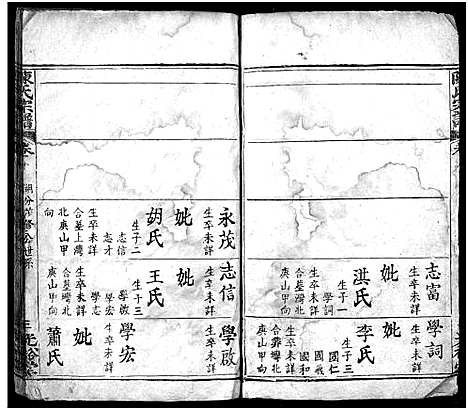 陳氏宗譜
卷
志富
生卒未詳
妣
洪氏
生子一
學詞
合墓塆北
庚山甲向
學詞
生卒未詳
妣
李氏
生子三
國仁
國和
庚山甲向
永茂
生卒未詳
妣
胡氏
生子二
志信
志才
生卒未詳
合墓上塆
北庚山甲
向
志信
生卒未詳
妣
王氏
生子三
學啟
學宏
學志
生卒未詳
合墓塆北
庚山甲向
學啟
生卒未詳
學宏
生卒未詳
妣
蕭氏
陳氏宗譜
卷